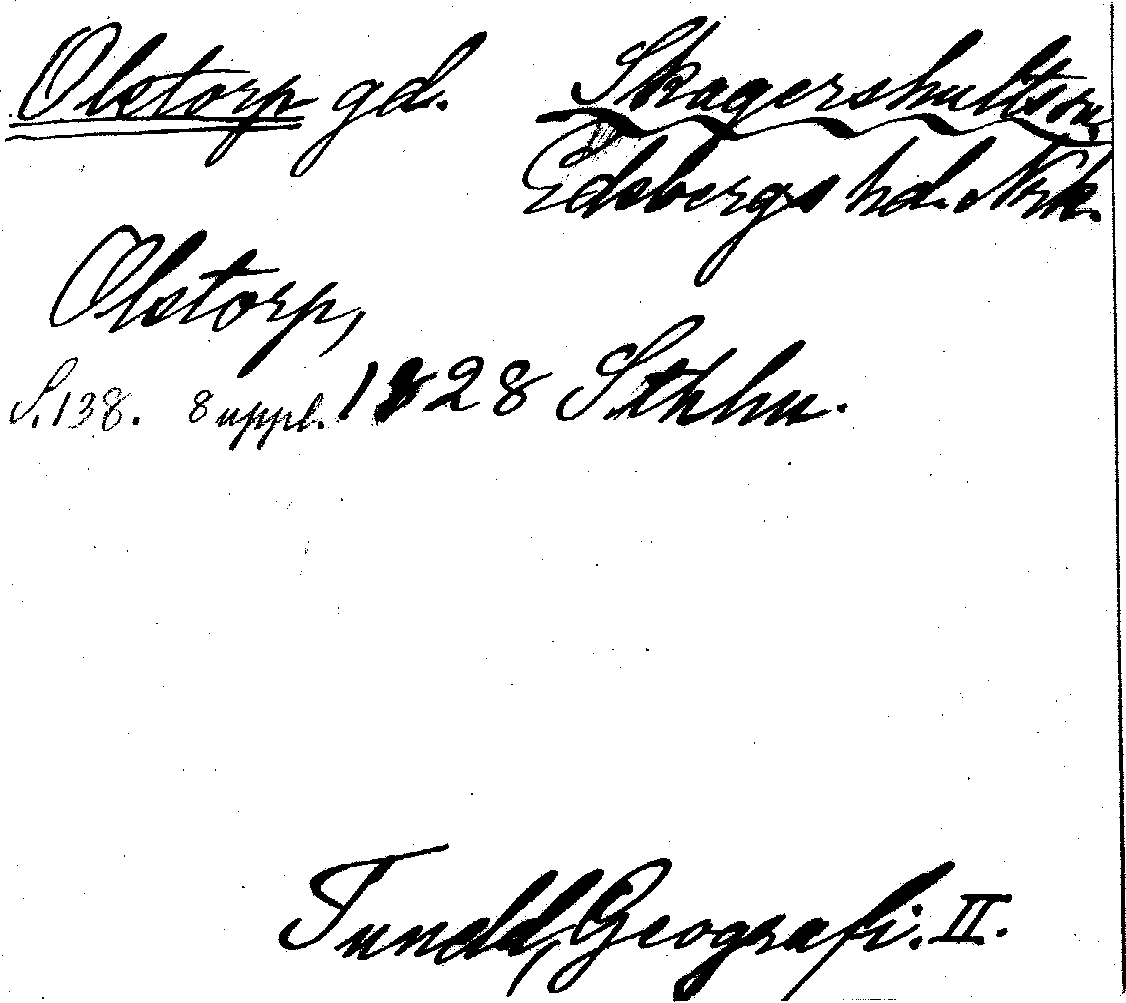 Olstorp gd. Skagershults sn,
Edsbergs hd. Nrk.
Olstorp,
S. 138. 8 uppl. 1828 Sthlm.
Tuneld, Geografi. II.